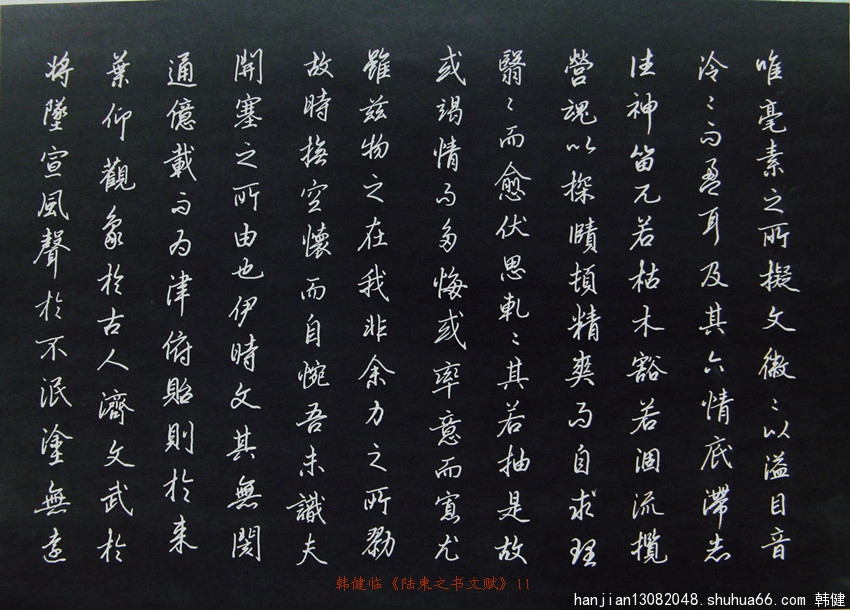 唯毫素之所擬文徽々以溢目音
泠々而盈耳及其六情底滯志
往神留兀若枯木豁若涸流攬
營魂以探賾頓精爽而自求理
翳々而愈伏思軋々其若抽是故
或竭情而多悔或率意而寡尤
雖茲物之在我非余力之所勠
故時撫空懷而自惋吾未識夫
開塞之所由也伊時文其無閡
通億載而為津俯貽則於来
葉仰觀象於古人濟文武於
將墜宣風聲於不泯塗無遠
韩健临《陆柬之书文赋》11
hanjian13082048.shuhua66.com 韩健